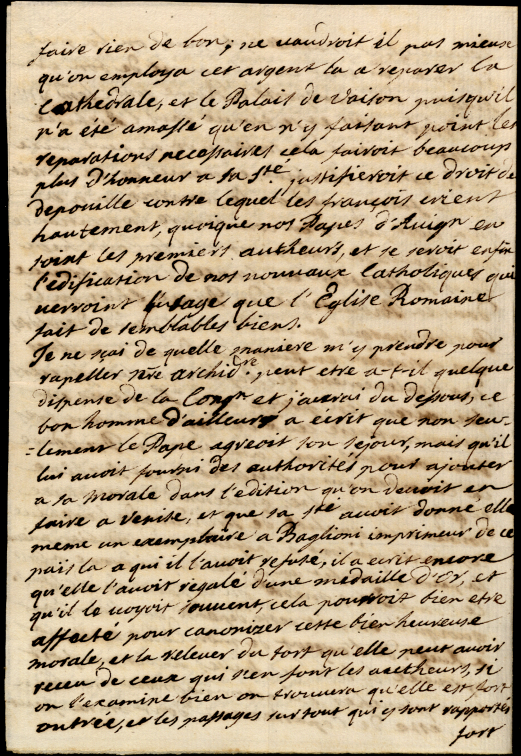 faire rien de bon; ne vaudroit il pas mieux
qu'on employa cet argent la a reparer la
Cathedrale, et le Palais de Vaison puisqu'il
n'a été amassé qu'en n'y faisant point les
reparations necessaires cela fairoit beaucoup
plus d'honneur a sa Sté, justifieroit ce droit de
depouille contre lequel les françois crient
hautement, quoique nos Papes d'Avign en
soint les premiers autheurs, et se seroit enfin
l'edification de nos nouvaux Catholiques qui
verroint l'usage que l'Eglise Romaine
fait de semblables biens.
Je ne sçai de quelle maniere m'y prendre pour
rapeller nre archidre, peut etre a-t-il quelque
dispense de la Congon et j'aurai du dessous, ce
bon homme d'ailleurs a écrit que non seu-
-lement le Pape agreoit son sejour, mais qu'il
lui avoit fourni des authorités pour ajouter
a sa morale dans l'edition qu'on devoit en
faire a Venise, et que sa Ste avoit donné elle
meme un exemplaire a Baglioni imprimeur de ce
pais la a qui il l'avoit refusé, il a ecrit encore
qu'elle l'avoit regalé d'une medaille d'Or, et
qu'il le voyoit souvent, cela pourroit bien etre
affecté pour canonizer cette bien heureuse
morale, et la relever du tort qu'elle peut avoir
receu de ceux qui s'en font les autheurs, si
on l'examine bien on trouvera qu'elle est fort
outrée, et les passages sur tout qui y sont rapportés
fort